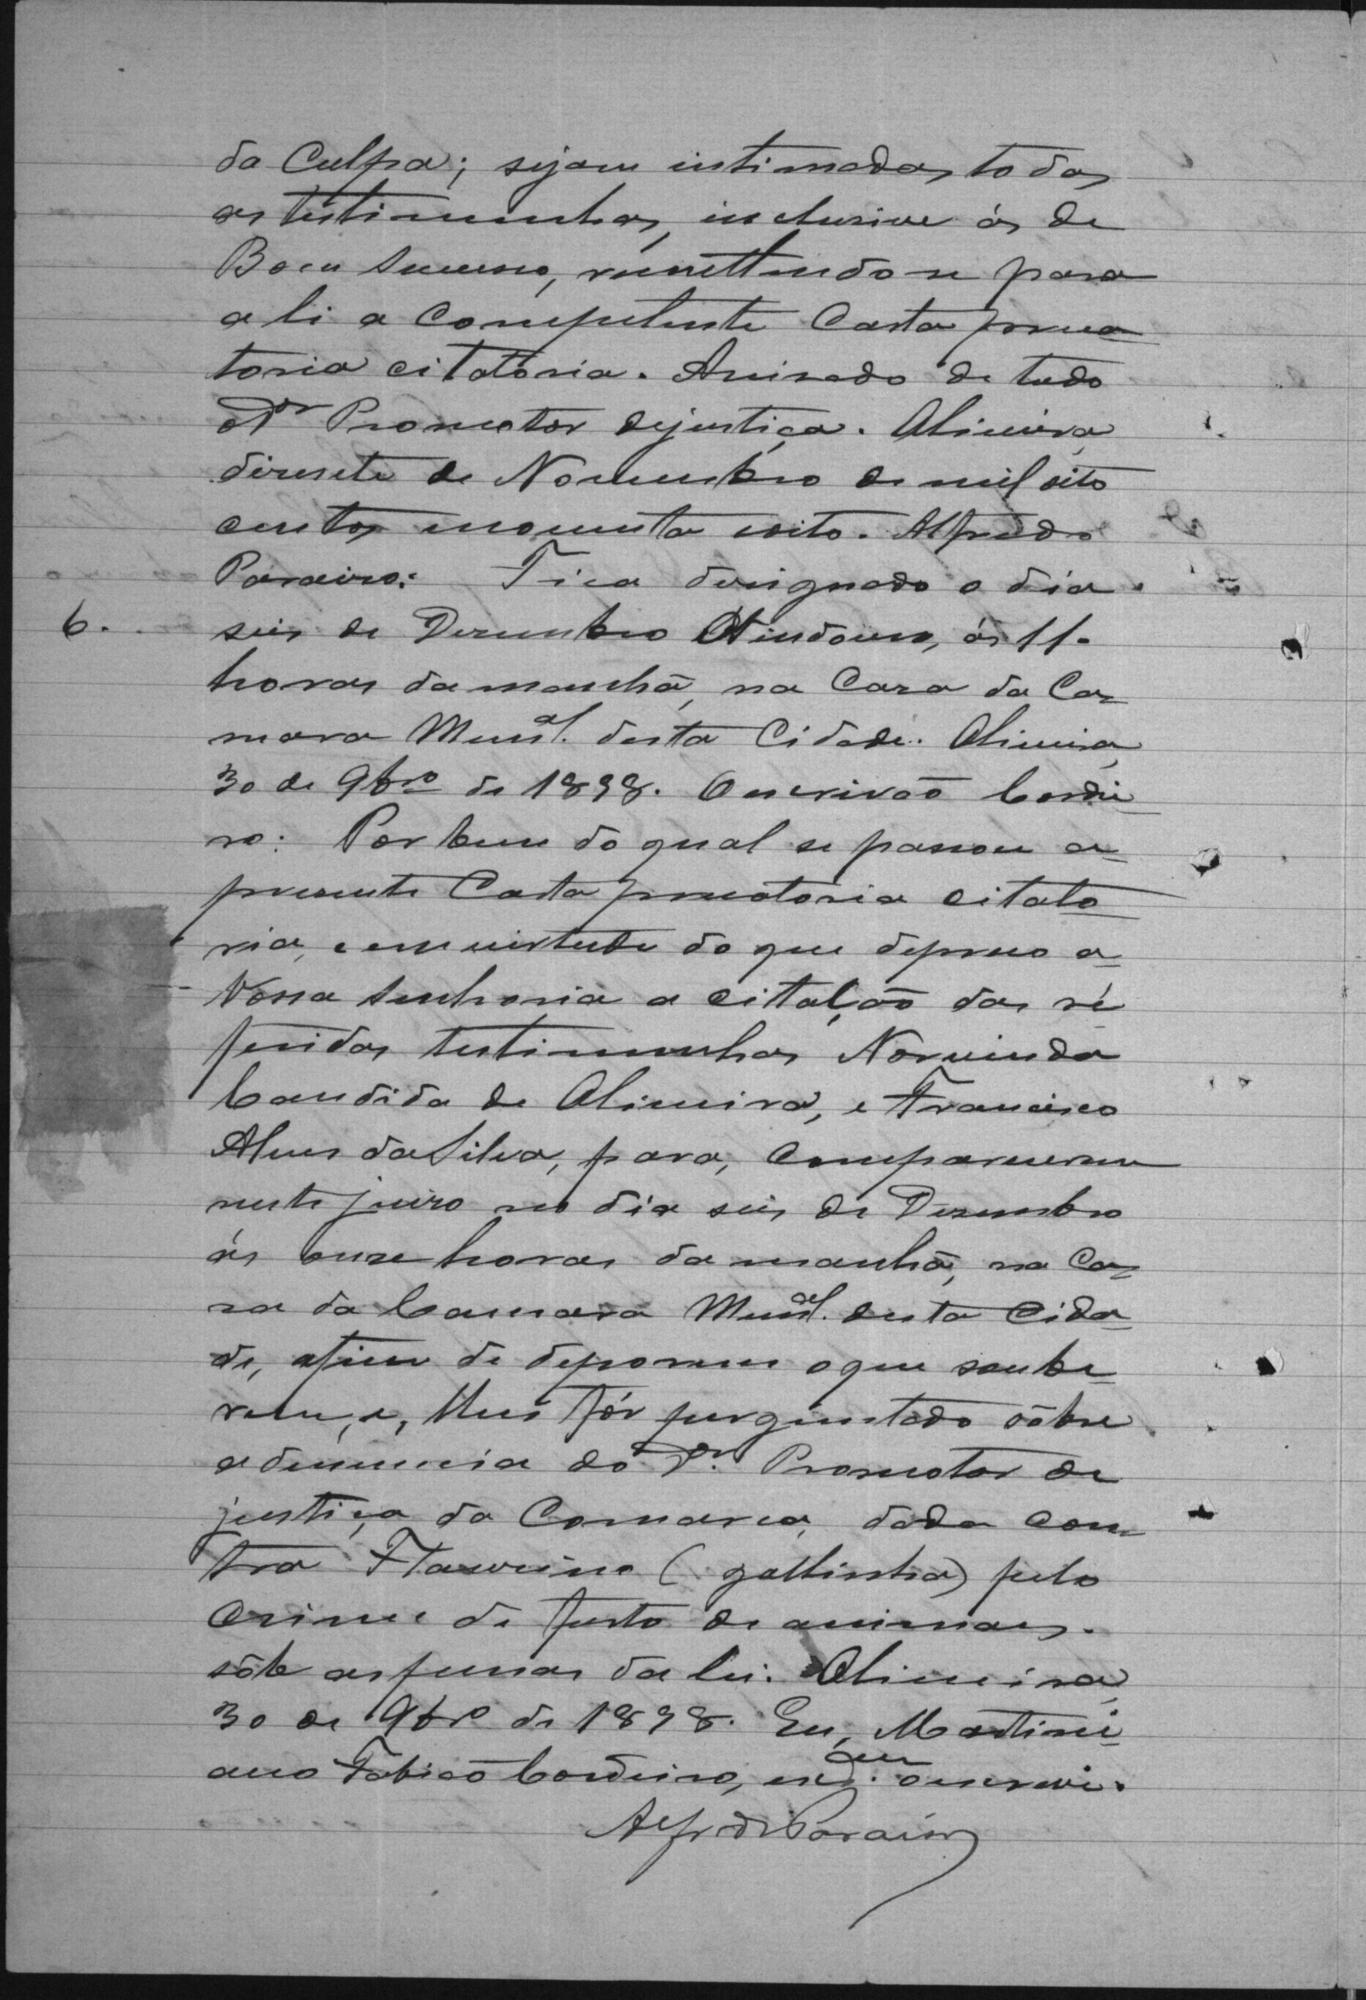 da Culpa; sejam intimadas todas
as testimunhas, inclusive ás de
Bom Sucesso, remettendo se para
ali a competente Carta preca
toria citatoria. Avisado de tudo
o Dr Promotor dejustiça. Oliveira,
dezesete de Novembro de mil oito
centos enoventa eoito. Alfredo
Paraizo: Fica designado o dia
6. seis de Dezembro vindouro, ás 11
horas damanhã, na Caza da Ca-
mara Munal. desta Cidade. Oliveira,
30 de 9bro de 1898. Oescrivaõ Cordei
ro: Por bem do qual se passou a-
presente Carta precatoria citato
ria, e emvirtude do que depreco a-
Vossa Senhoria a citaçaõ das re
feridas testimunhas Norvinda
Candida de Oliveira, e Francisco
Alves daSilva, para, comparecerem
neste juizo no dia seis de Dezembro
ás onze horas da manhã, na Ca-
sa da Camara Munal. desta Cida-
de, afim de deporem oque soube-
rem, e, lhes fôr perguntado sôbre
adenuncia do Dr. Promotor de
justiça da Comarca, dada com
tra Flauzino (gallinha) pelo
crime de furto de animaes.
sôb aspenas da lei. Oliveira,
30 de 9bro de 1898. Eu, Martini
ano Fabiaõ Cordeiro, oescrevi.
Alfredo Paraizo